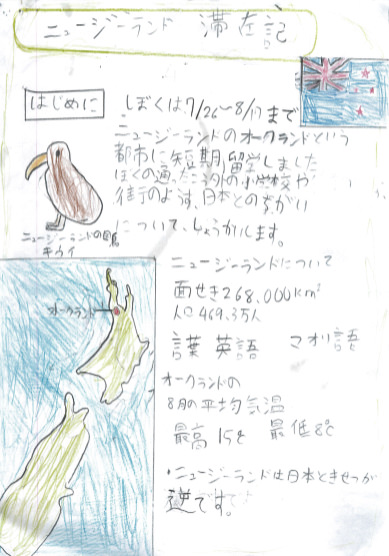 ニュージーランド 滞在記
はじめに
ぼくは7/26〜8/17まで
ニュージーランドのオークランドという
都市に短期留学しました
ぼくの通った
街のようす、日本とのちがい
について、しょうかします。
ニュージーランドの国鳥
キウイ
オークランド
ニュージーランドについて
面せき268,000km²
人口469.3万人
語 英語 マオリ語
オークランドの
8月の平均気温
最高 15℃ 最低8℃
・ニュージーランドは日本ときせつが
逆です。